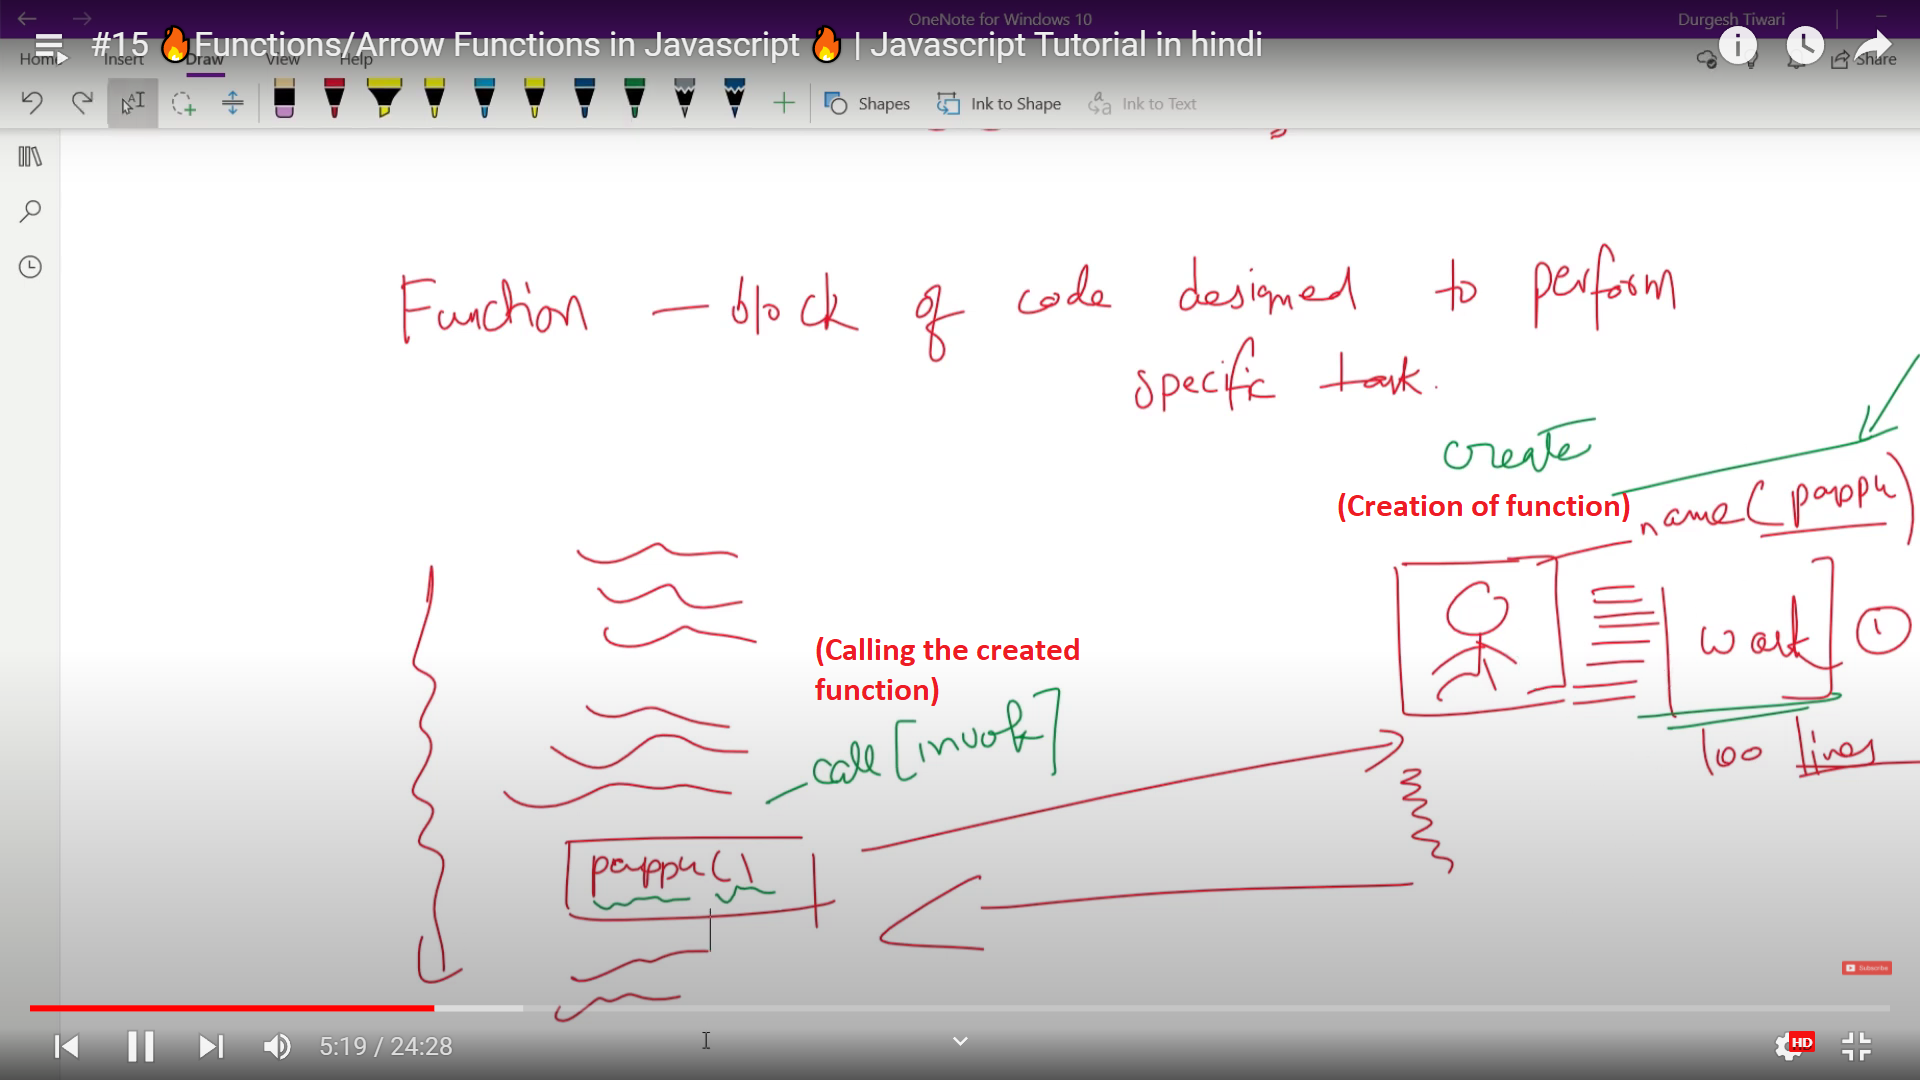 OneNote for Windows 10
Durgesh Tiwari
#15 🔥Functions/Arrow Functions in Javascript 🔥 | Javascript Tutorial in hindi
Home Insert Draw View Help Share
Shapes Ink to Shape Ink to Text
Function — block of code designed to perform
specific task.
create
(Creation of function)
name (pappu)
work 1
100 lines
(Calling the created
function)
call [invok]
pappu()
Subscribe
5:19 / 24:28
HD